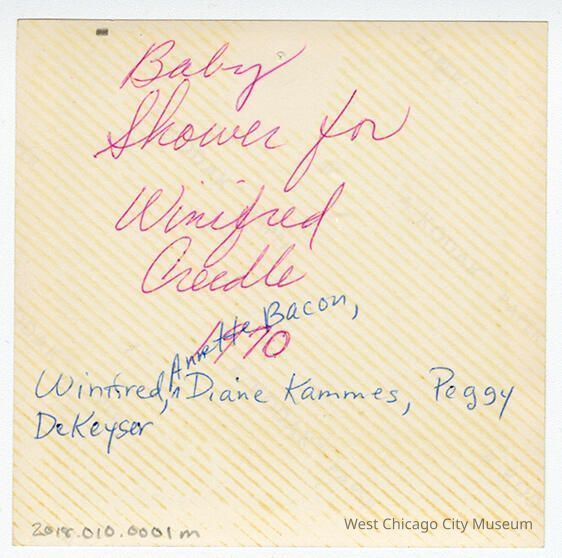 Baby
Shower for
Winifred
Creedle
1970
Annette Bacon,
Winifred, Diane Kammes, Peggy
DeKeyser
2018.010.0001m
West Chicago City Museum